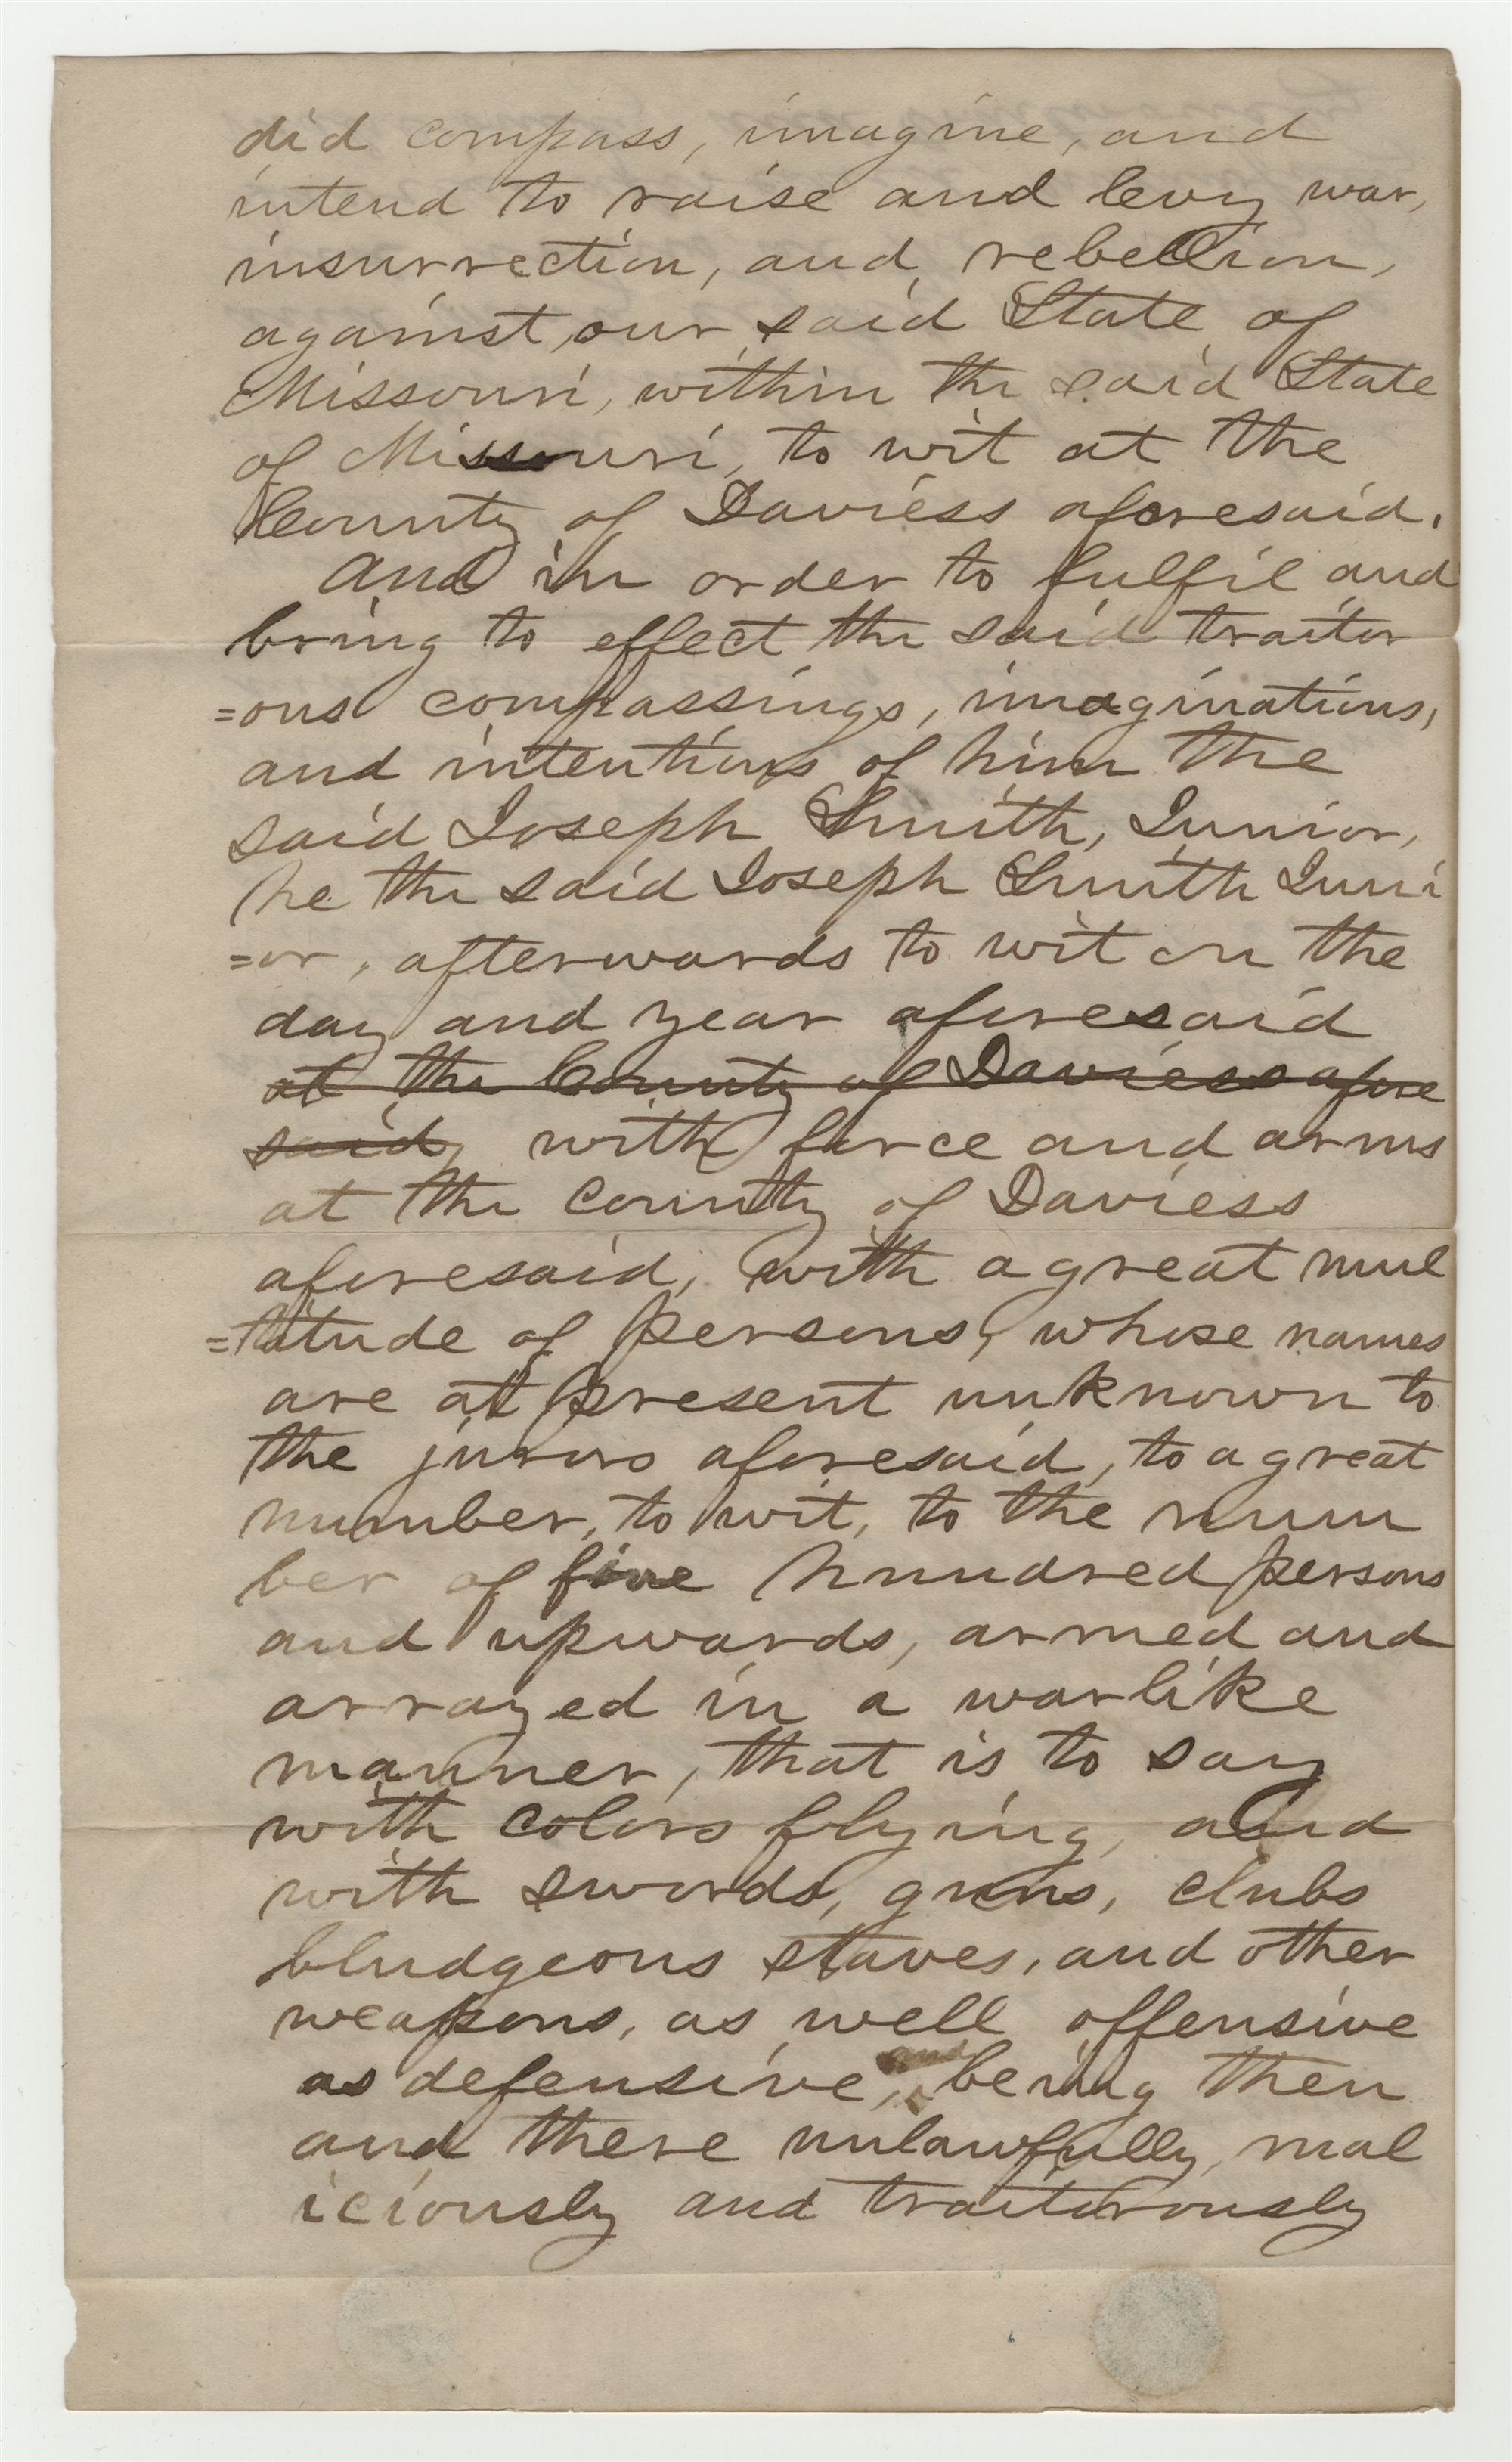 did compass, imagine, and
intend to raise and levy war,
insurrection, and rebellion,
against, our said State of
Missouri, within the said State
of Missouri, to wit at the
County of Daviess aforesaid.
And in order to fulfil and
bring to effect the said traitor
=ous compassings, imaginations,
and intentions of him the
said Joseph Smith, Junior,
he the said Joseph Smith Juni
=or, afterwards to wit on the
day and year aforesaid
at the County of Daviess afore
said, with force and arms
at the County of Daviess
aforesaid, with a great mul
=titude of persons, whose names
are at present unknown to
the jurors aforesaid, to a great
number, to wit, to the num
ber of five hundred persons
and upwards, armed and
arrayed in a warlike
manner, that is to say
with colors flying, and
with swords, guns, clubs
bludgeons staves, and other
weapons, as well offensive
as defensive, and being then
and there unlawfully, mal
iciously and traitorously